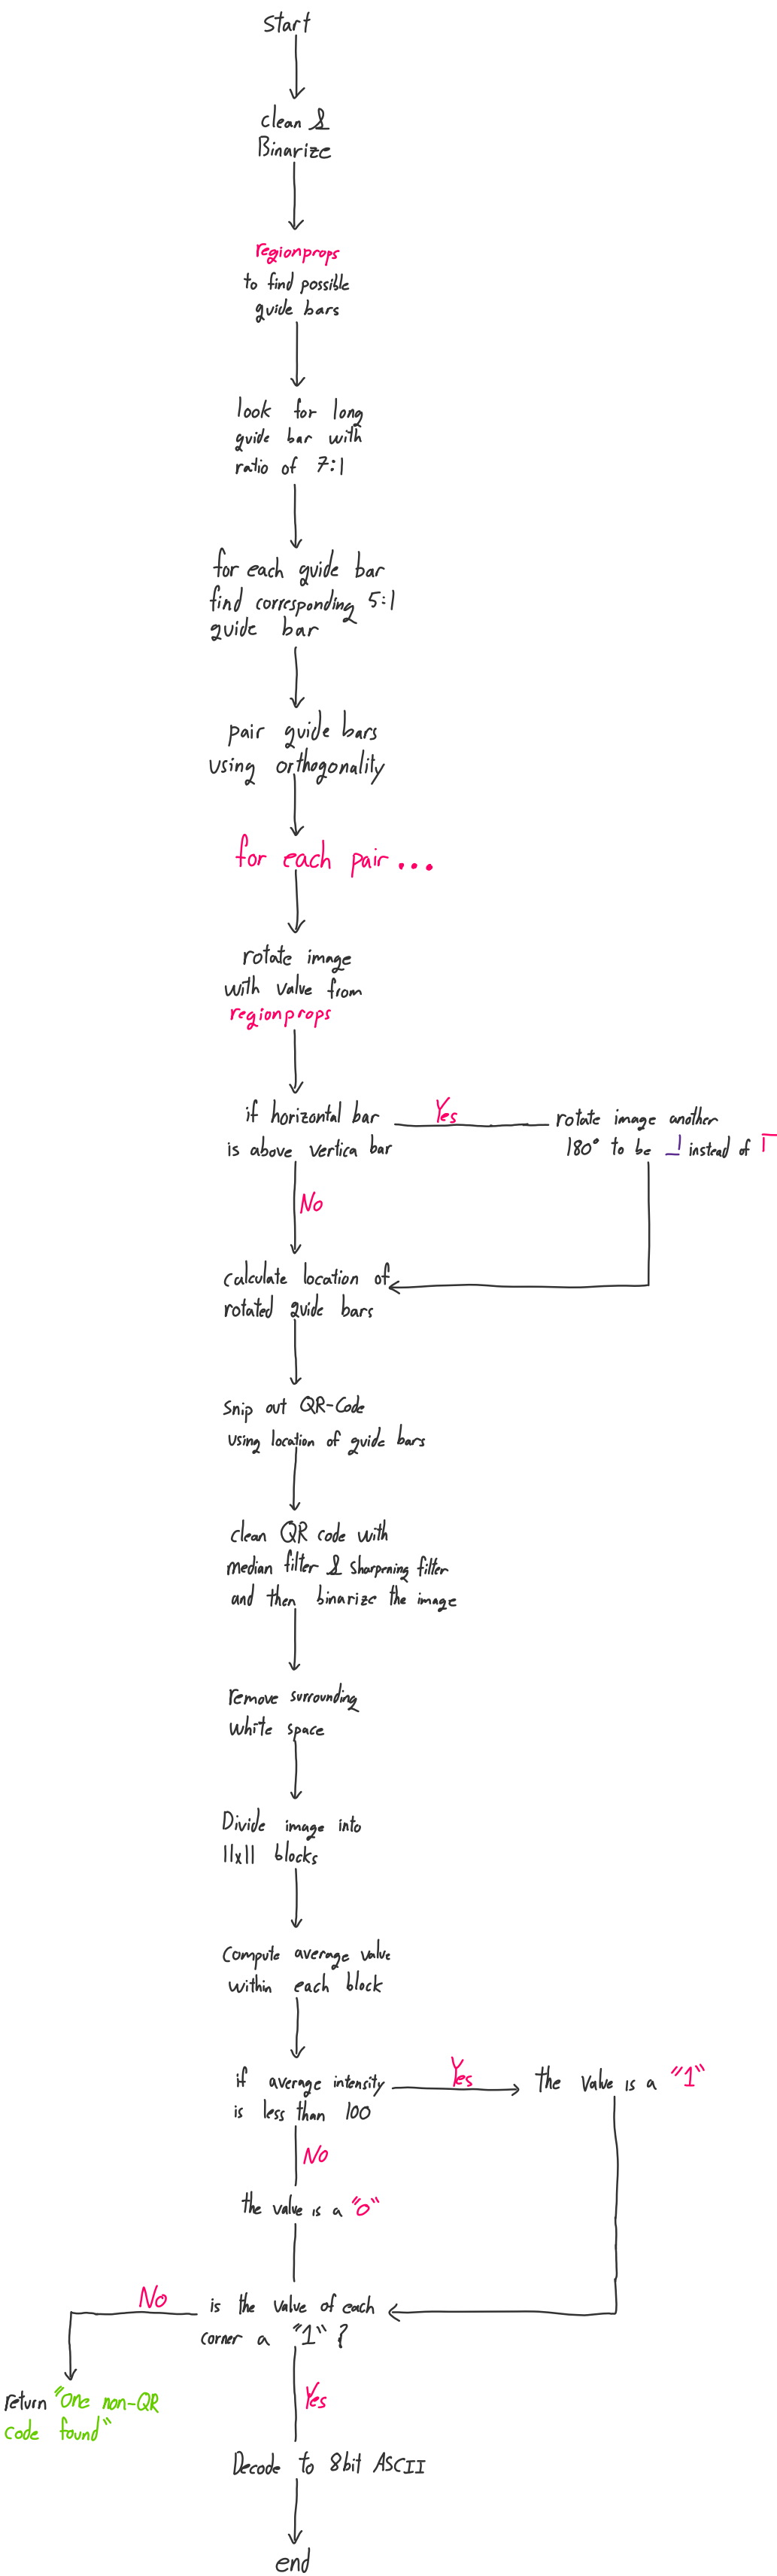 Start
clean &
Binarize
regionprops
to find possible
guide bars
look for long
guide bar with
ratio of 7:1
for each guide bar
find corresponding 5:1
guide bar
pair guide bars
using orthogonality
for each pair...
rotate image
with value from
regionprops
if horizontal bar
is above vertica bar
Yes
rotate image another
180° to be _| instead of
No
calculate location of
rotated guide bars
Snip out QR-Code
using location of guide bars
clean QR code with
median filter & sharpening filter
and then binarize the image
remove surrounding
white space
Divide image into
11x11 blocks
Compute average value
within each block
if average intensity
is less than 100
Yes
the value is a "1"
No
the value is a "0"
is the value of each
corner a "1"?
No
return "One non-QR
code found"
Yes
Decode to 8bit ASCII
end